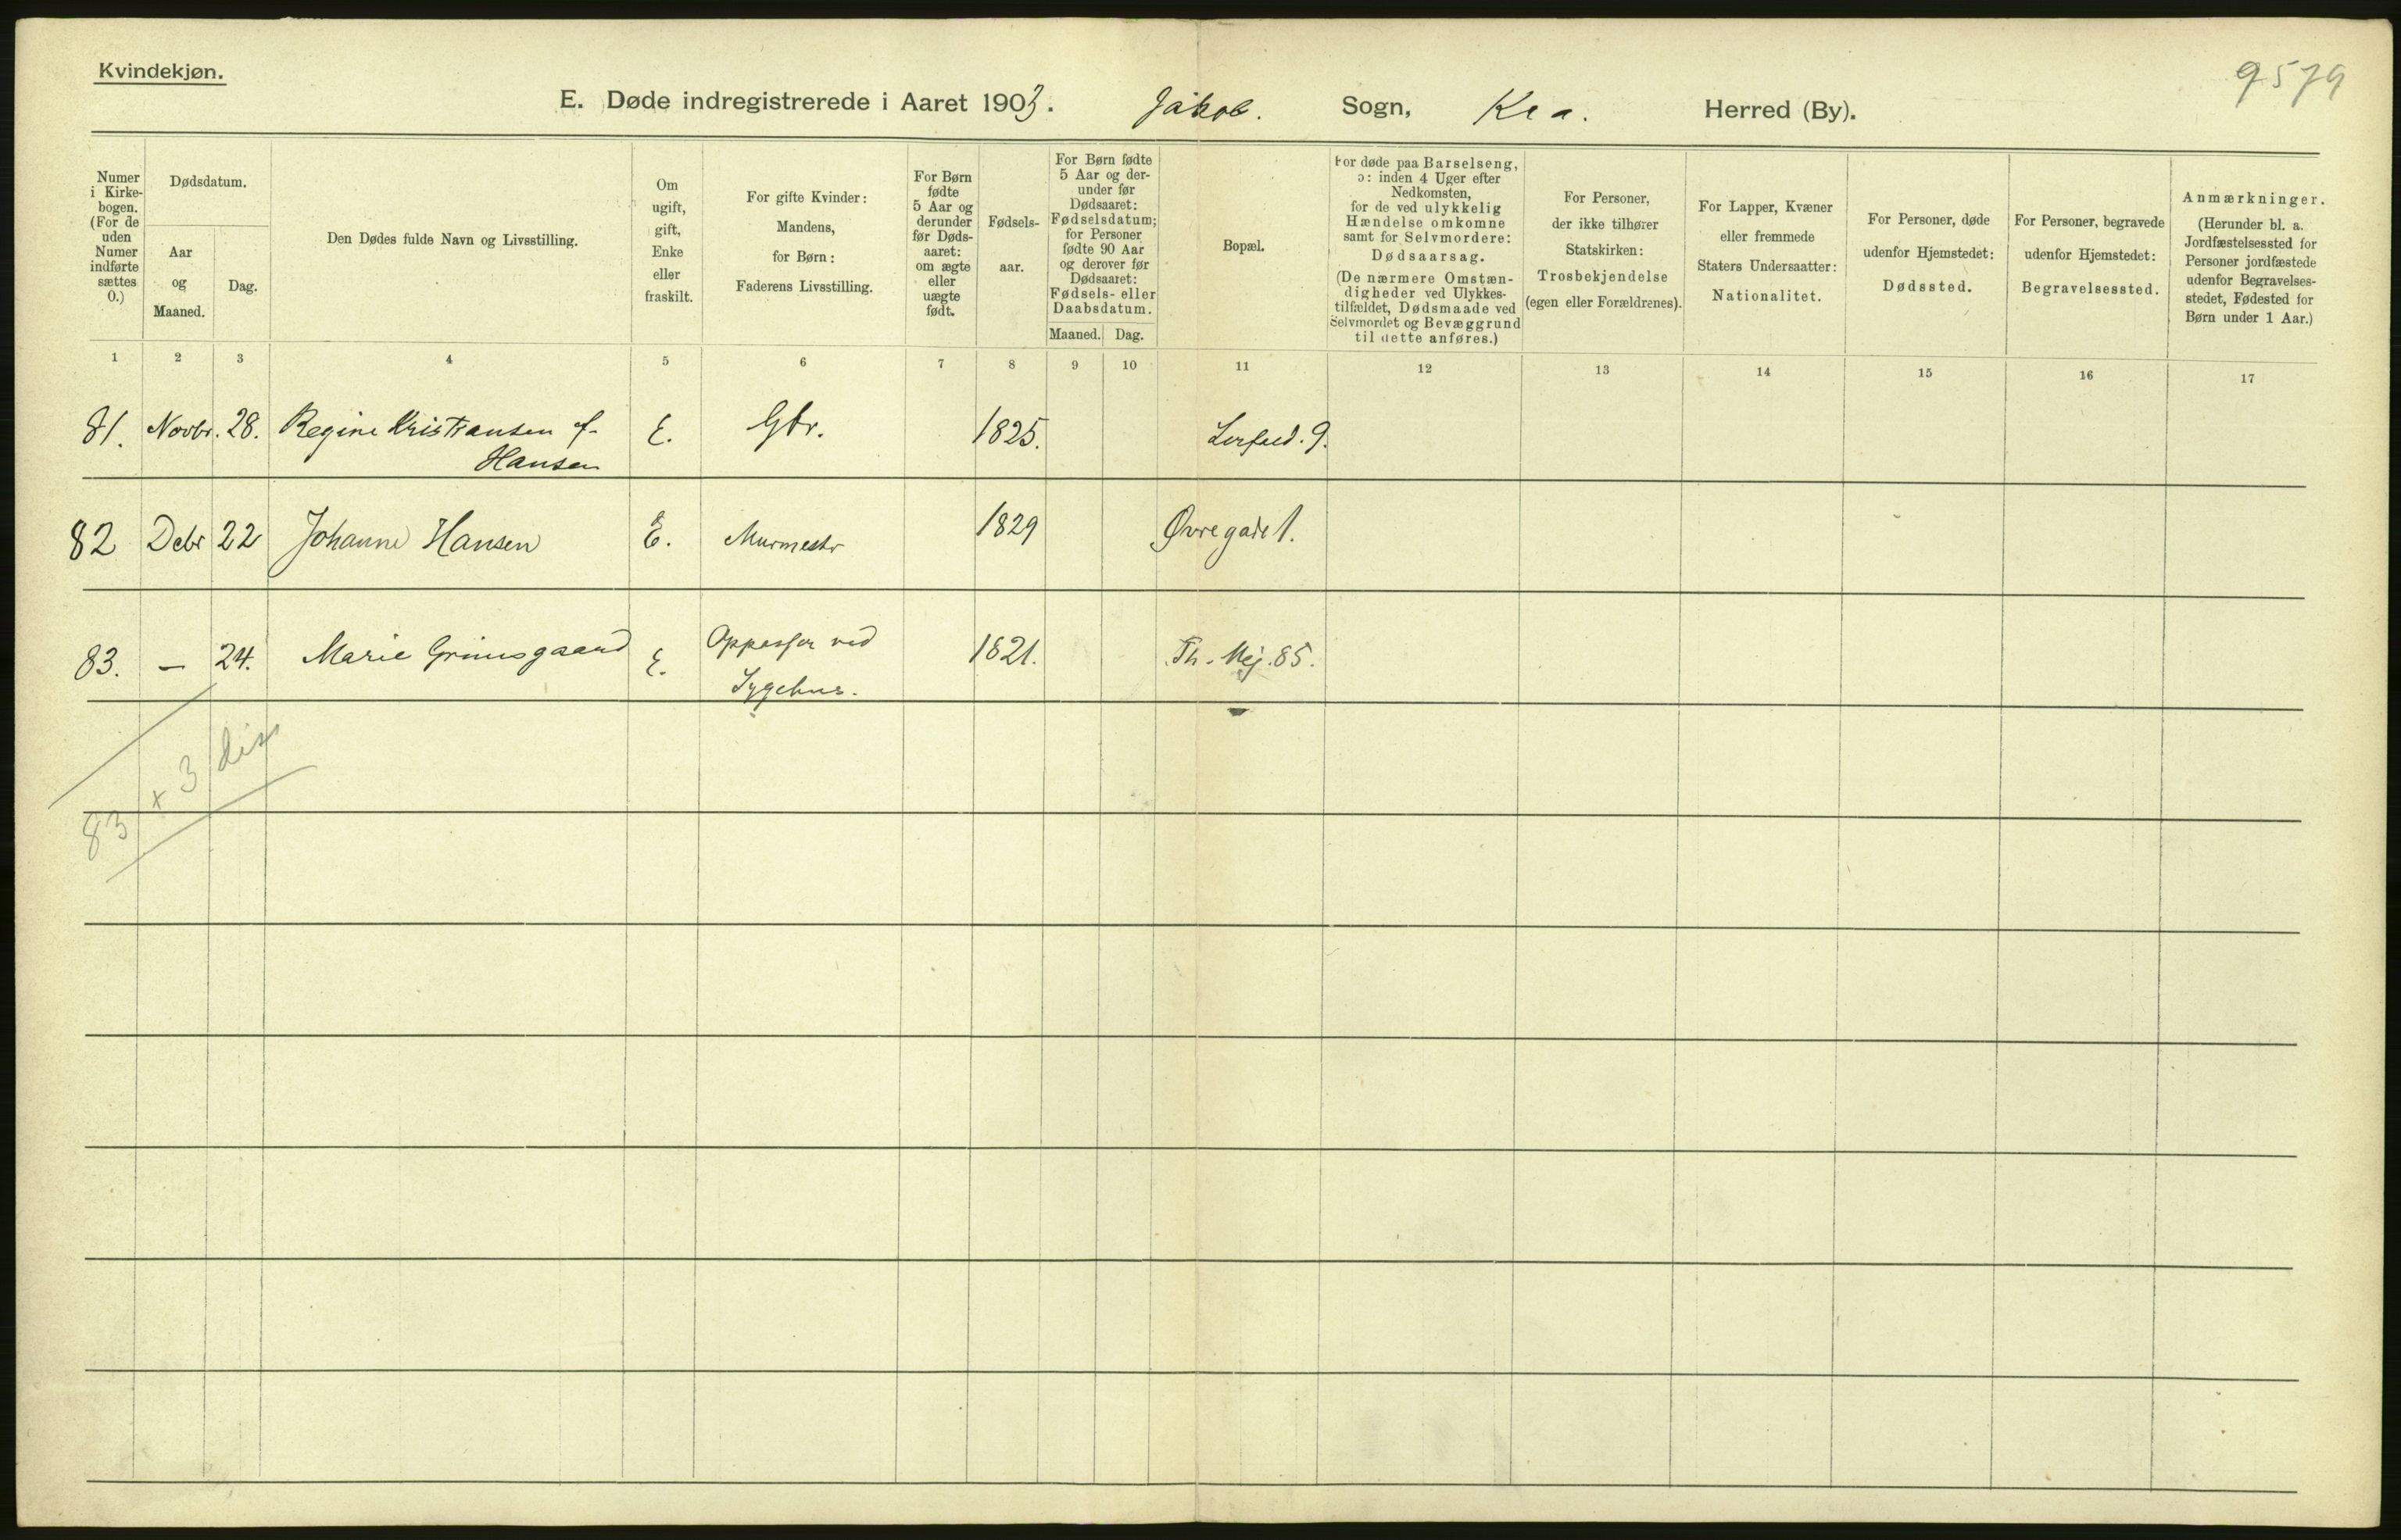 Kvindekjøn.
9579
E. Døde indregistrerede i Aaret 1903. Jakob. Sogn, Kra. Herred (By).
Numer i Kirkebogen. (For de uden Numer indførte sættes 0.)
Dødsdatum.
Aar og Maaned.
Dag.
Den Dødes fulde Navn og Livsstilling.
Om ugift, gift, Enke eller fraskilt.
For gifte Kvinder: Mandens, for Børn: Faderens Livsstilling.
For Børn fødte 5 Aar og derunder før Dødsaaret: om ægte eller uægte født.
Fødselsaar.
For Børn fødte 5 Aar og derunder før Dødsaaret: Fødselsdatum; for Personer fødte 90 Aar og derover før Dødsaaret: Fødsels- eller Daabsdatum.
Maaned. Dag.
Bopæl.
For døde paa Barselseng, ɔ: inden 4 Uger efter Nedkomsten, for de ved ulykkelig Hændelse omkomne samt for Selvmordere: Dødsaarsag. (De nærmere Omstændigheder ved Ulykkestilfældet, Dødsmaade ved Selvmordet og Bevæggrund til dette anføres.)
For Personer, der ikke tilhører Statskirken: Trosbekjendelse (egen eller Forældrenes).
For Lapper, Kvæner eller fremmede Staters Undersaatter: Nationalitet.
For Personer, døde udenfor Hjemstedet: Dødssted.
For Personer, begravede udenfor Hjemstedet: Begravelsessted.
Anmærkninger. (Herunder bl. a. Jordfæstelsessted for Personer jordfæstede udenfor Begravelsesstedet, Fødested for Børn under 1 Aar.)
1 2 3 4 5 6 7 8 9 10 11 12 13 14 15 16 17
81. Novbr. 28. Regine Kristiansen f. E. Gbr. 1825. 9.
Hansen
82 Debr 22 Johanne Hansen E. Murmestr 1829 Øvregade 1.
83. — 24. Marie Grimsgaard E. Oppasser ved 1821. Th. Mej. 85.
Sygehus.
83 + 3 dis